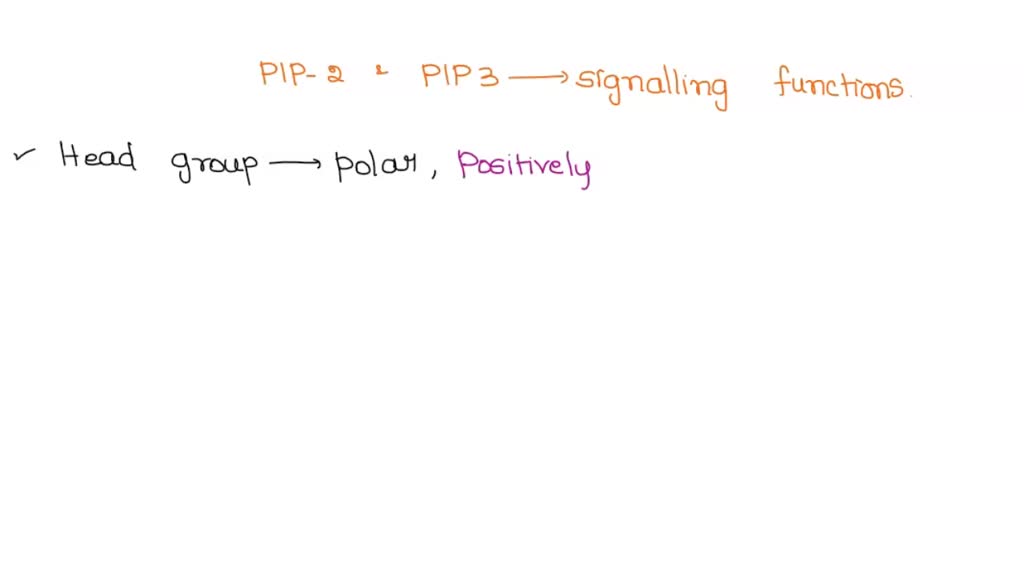 PIP-2 & PIP3 → signalling functions.
✓ Head group → polar, Positively